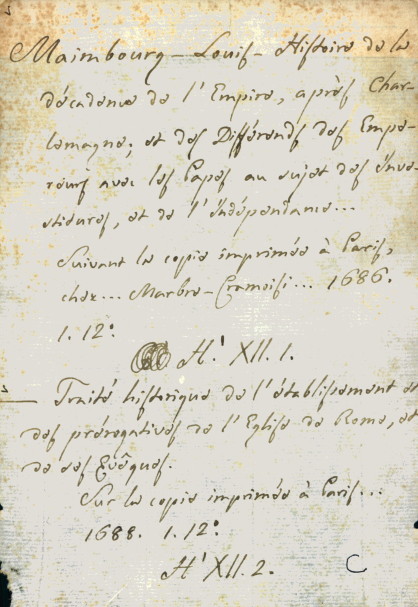 Maimbourg - Louis - Histoire de la
décadence de l'Empire, après Char-
lemagne; et des Différends des Empe-
reurs avec les Papes au sujet des Inve-
stitures, et de l'indépendance...
Suivant la copie imprimée à Paris,
chez... Marbre-Cramoisi... 1686.
1. 12º
H. XII. 1.
Traité historique de l'établissement et
des prérogatives de l'Eglise de Rome, et
de ses Evêques.
Sur la copie imprimée à Paris...
1688. 1. 12º
H XII. 2. C